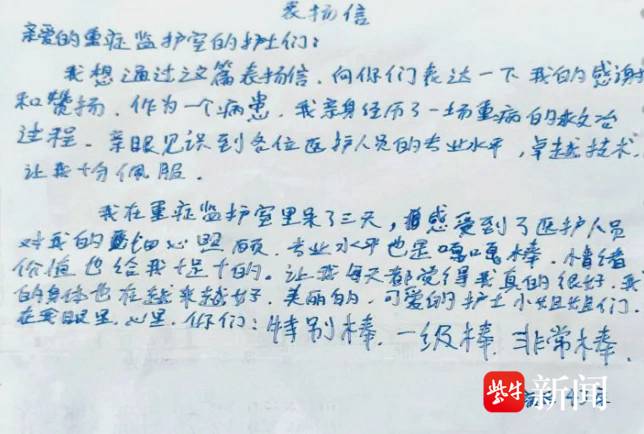 表扬信
亲爱的重症监护室的护士们：
我想通过这篇表扬信，向你们表达一下我的感谢
和赞扬，作为一个病患，我亲身经历了一场重病的救治
过程，亲眼见识到各位医护人员的专业水平，卓越技术，
让我十分佩服。
我在重症监护室里呆了三天，感受到了医护人员
对我的细心照顾，专业水平也是嘎嘎棒，情绪
价值也给我十足十的。让我每天都觉得我真的很好，我
的身体也在越来越好，美丽的，可爱的护士小姐姐们，
在我眼里，心里，你们：特别棒，一级棒，非常棒，
紫牛新闻